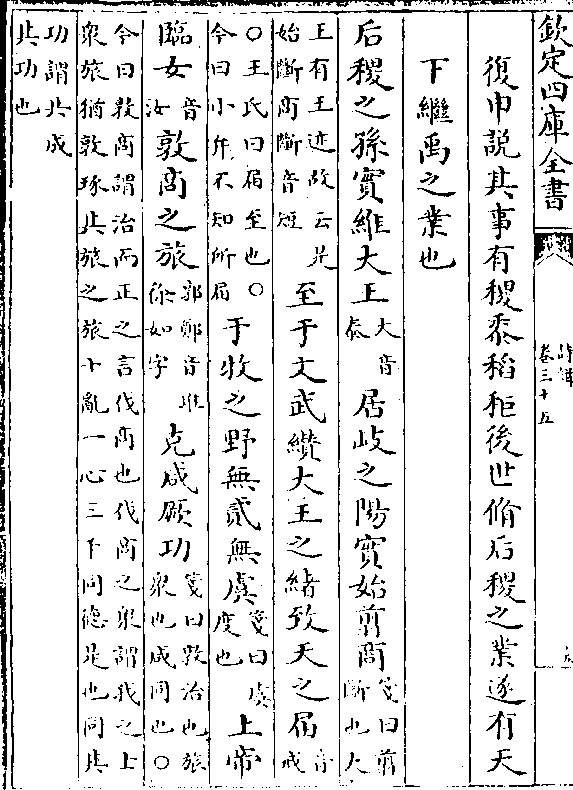 欽定四庫全書
詩緝
卷三十五
復申說其事有稷黍稻秬後世脩后稷之業遂有天
下繼禹之業也
后稷之孫實維大王大音泰居岐之陽實始翦商箋曰翦斷也大
王有王迹故云是始斷商斷音短至于文武纘大王之緒致天之屆音戒
○王氏曰屆至也○今曰小弁不知所屆于牧之野無貳無虞箋曰虞度也上帝
臨女音汝敦商之旅郭鄭音堆徐如字克咸厥功箋曰敦治也旅衆也咸同也○
今曰敦商謂治而正之言伐商也伐商之衆謂我之士衆旅猶敦琢其旅之旅十亂一心三千同德是也同其
功謂共成其功也